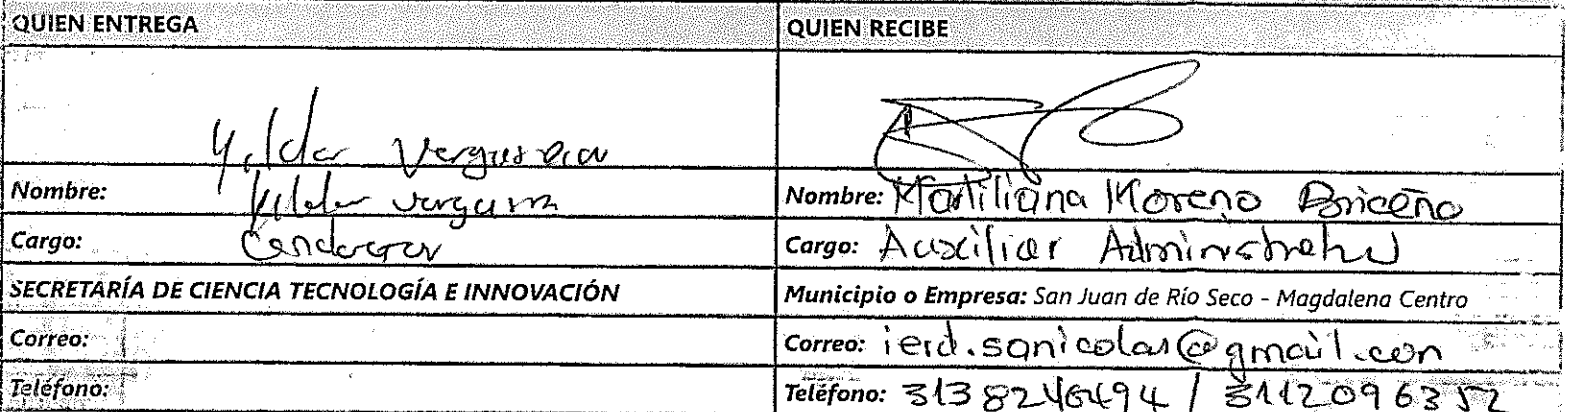 QUIEN ENTREGA
QUIEN RECIBE
Yilder Vergara
Nombre: Yilder Vergara
Nombre: Martiliana Moreno Briceño
Cargo: Conductor
Cargo: Auxiliar Administrativo
SECRETARÍA DE CIENCIA TECNOLOGÍA E INNOVACIÓN
Municipio o Empresa: San Juan de Río Seco - Magdalena Centro
Correo:
Correo: ierd.sanicolas@gmail.com
Teléfono:
Teléfono: 3138246494 / 3112096352